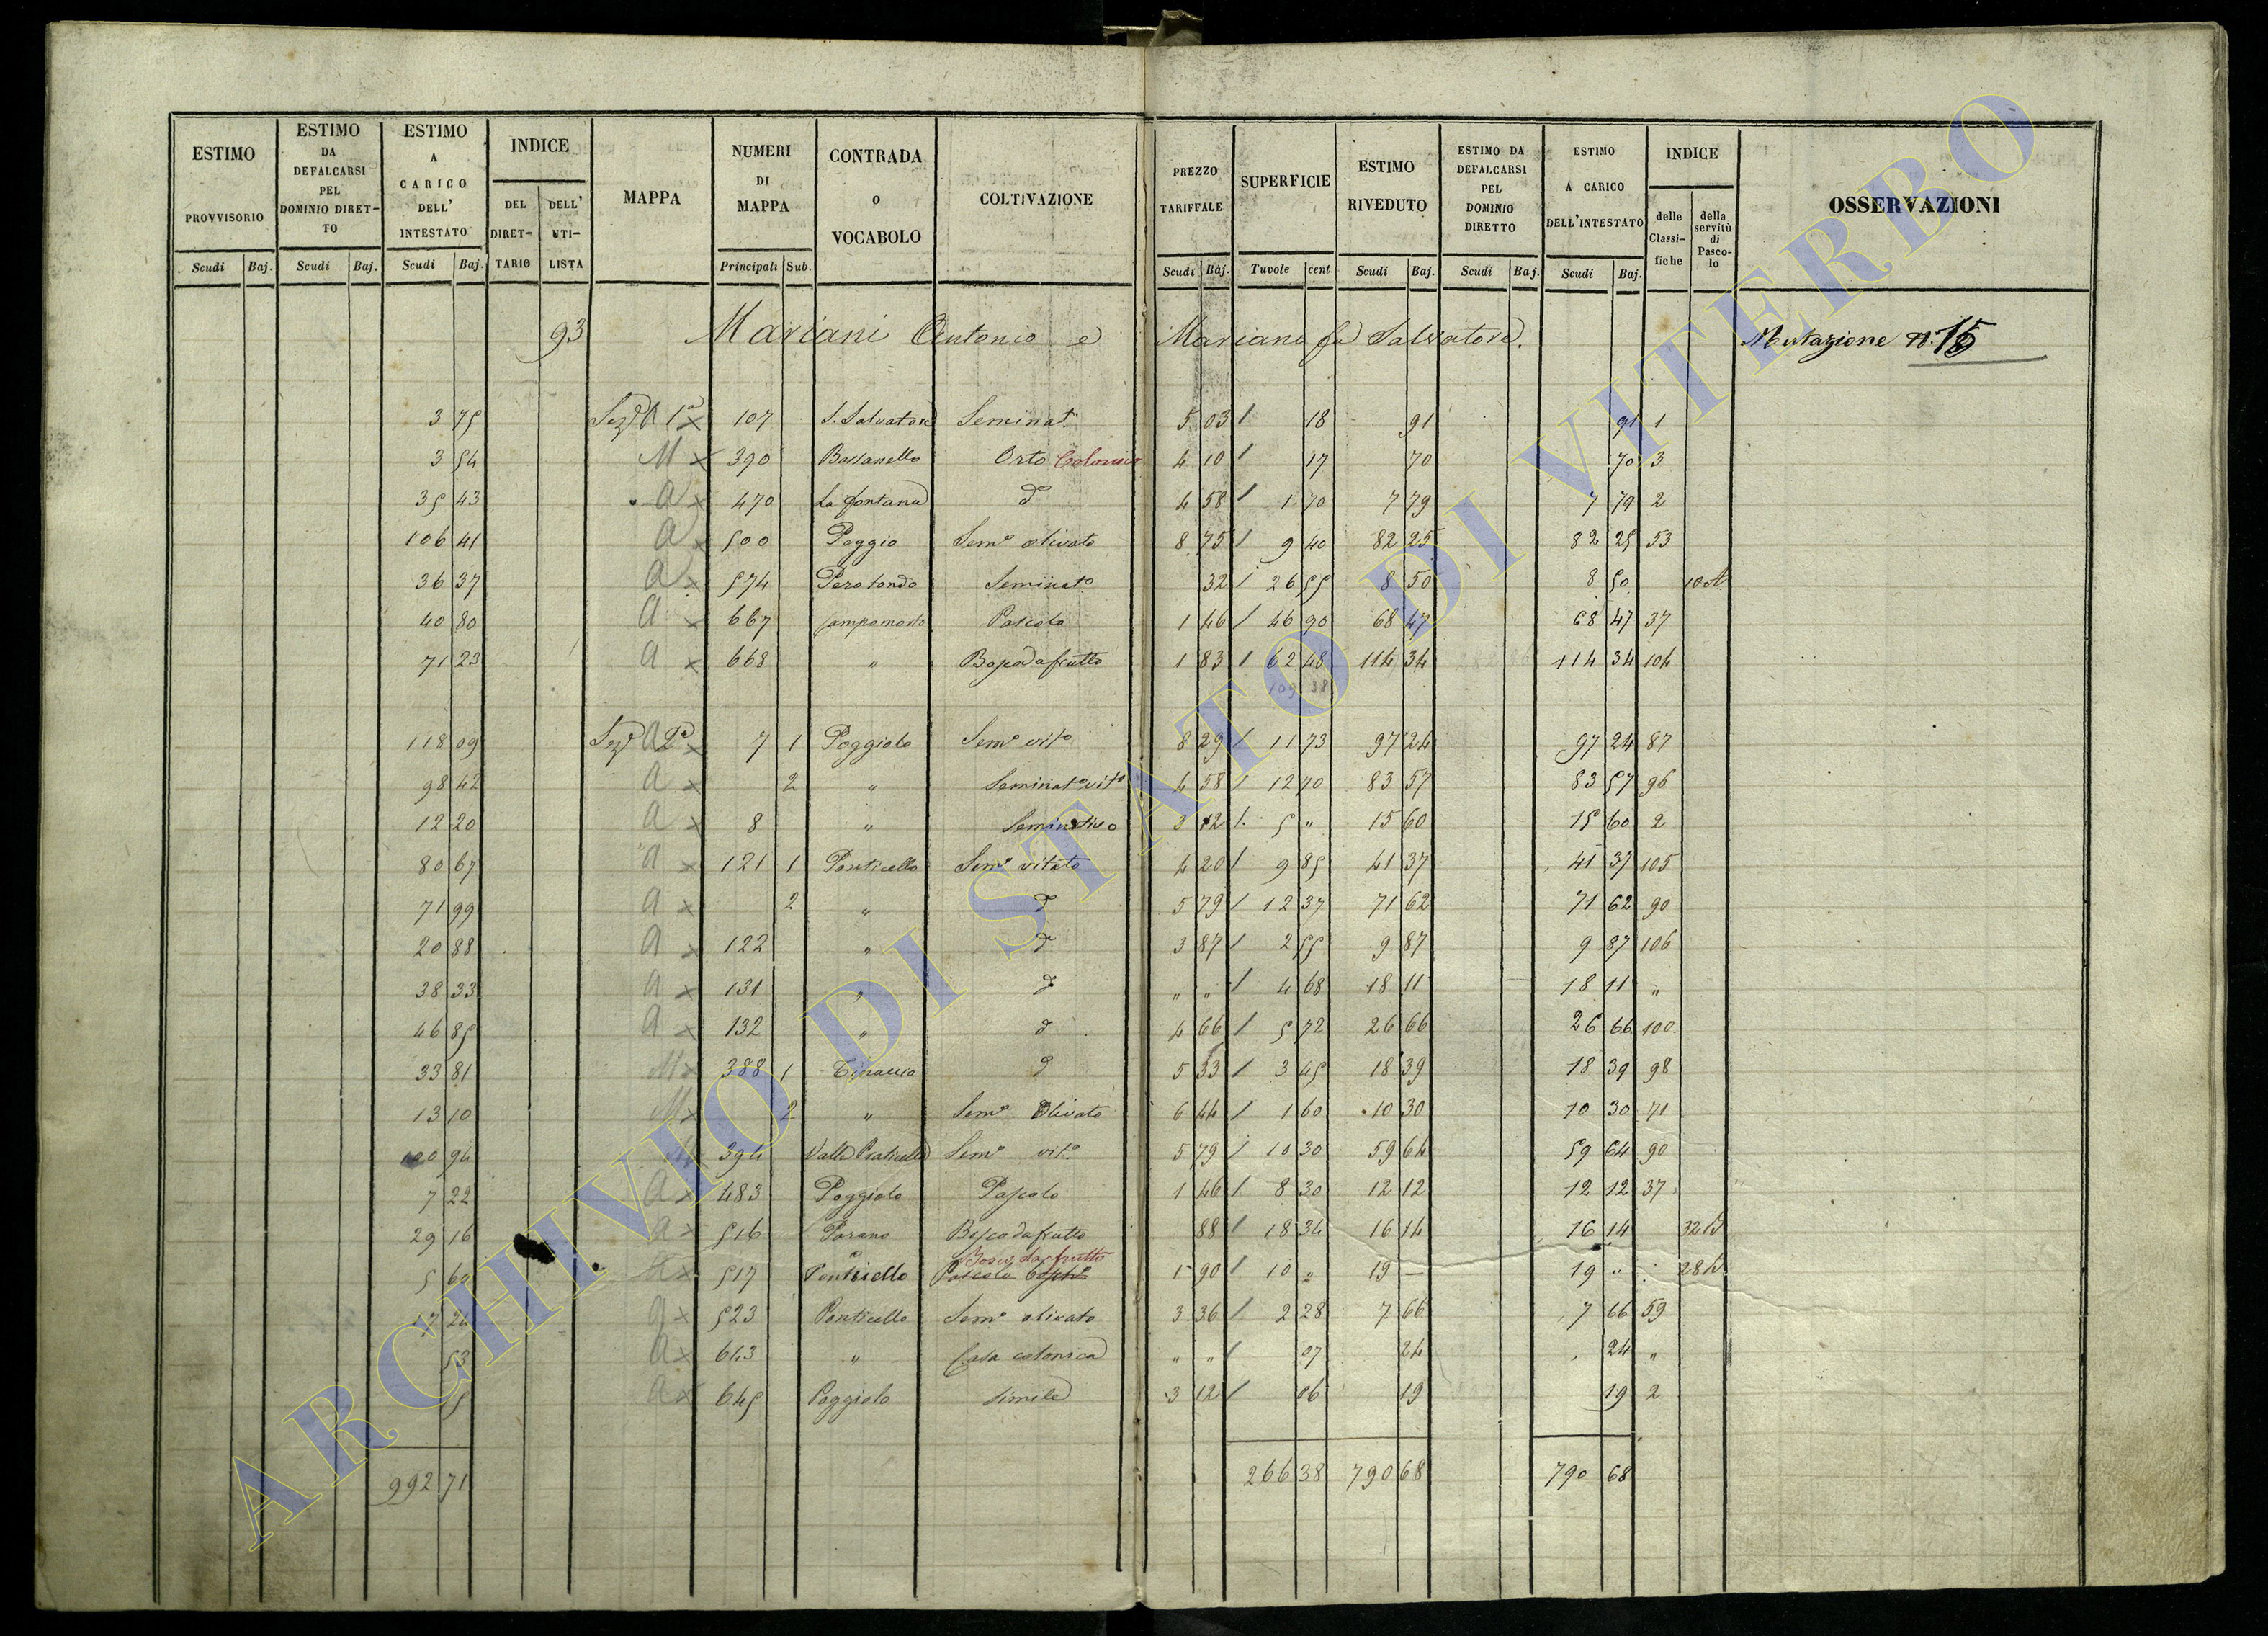 ESTIMO PROVVISORIO Scudi Baj.
ESTIMO DA DEFALCARSI PEL DOMINIO DIRET-TO Scudi Baj.
ESTIMO A CARICO DELL' INTESTATO Scudi Baj.
INDICE DEL DIRET-TARIO DELL' UTI-LISTA
MAPPA
NUMERI DI MAPPA Principali Sub.
CONTRADA o VOCABOLO
COLTIVAZIONE
PREZZO TARIFFALE Scudi Baj.
SUPERFICIE Tavole cent
ESTIMO RIVEDUTO Scudi Baj.
ESTIMO DA DEFALCARSI PEL DOMINIO DIRETTO Scudi Baj.
ESTIMO A CARICO DELL'INTESTATO Scudi Baj.
INDICE delle Classi-fiche della servitù di Pasco-lo
OSSERVAZIONI
93 Mariani Antonio e Mariano fu Salvatore. Mutazione n. 15
3 75 Sez A 1a x 107 S. Salvatore Seminat 5 03 / 18 91 91 1
3 54 M x 390 Bassanello Orto Colonico 4 10 / 17 70 70 3
35 43 a x 470 La fontana do 4 58 / 1 70 7 79 7 79 2
106 41 a x 500 Poggio Semo olivato 8 75 / 9 40 82 25 82 25 53
36 37 a x 574 Perotondo Seminato 32 / 26 55 8 50 8 50
40 80 a x 667 Campomorto Pascolo 1 46 / 46 90 68 47 68 47 37
71 23 a x 668 " Bosco da frutto 1 83 / 62 48 114 34 114 34 104
109 38
118 09 Sez A 2a x 7 1 Poggiolo Semo vito 8 29 / 11 73 97 24 97 24 87
98 42 a x 2 " Seminato vito 4 58 / 12 70 83 57 83 57 96
12 20 a x 8 " Seminativo 3 12 / 5 " 15 60 15 60 2
80 67 a x 121 1 Ponticello Semo vitato 4 20 / 9 85 41 37 41 37 105
71 99 a x 2 " d 5 79 / 12 37 71 62 71 62 90
20 88 a x 122 " d 3 87 / 2 55 9 87 9 87 106
38 33 a x 131 " d " " / 4 68 18 11 18 11 "
46 85 a x 132 " d 4 66 / 5 72 26 66 26 66 100
33 81 M x 388 1 Tinaccio d 5 33 / 3 45 18 39 18 39 98
13 10 M x 2 " Semo Olivato 6 44 / 1 60 10 30 10 30 71
94 x 394 Valle Semo vito 5 79 / 10 30 59 64 59 64 90
7 22 a x 483 Poggiolo Pascolo 1 46 / 8 30 12 12 12 12 37
29 16 a x 516 Porano Bosco da frutto 88 / 18 34 16 14 16 14 32
Bosco da frutto
5 60 x 517 Ponticello Pascolo 1 90 / 10 " 19 — 19 " 28
17 a x 523 Ponticello Semo olivato 3 36 / 2 28 7 66 7 66 59
53 a x 643 " Casa colonica " " / 07 24 24 "
5 a x 645 Poggiolo simile 3 12 / 06 19 19 2
992 71 266 38 790 68 790 68
ARCHIVIO DI STATO DI VITERBO